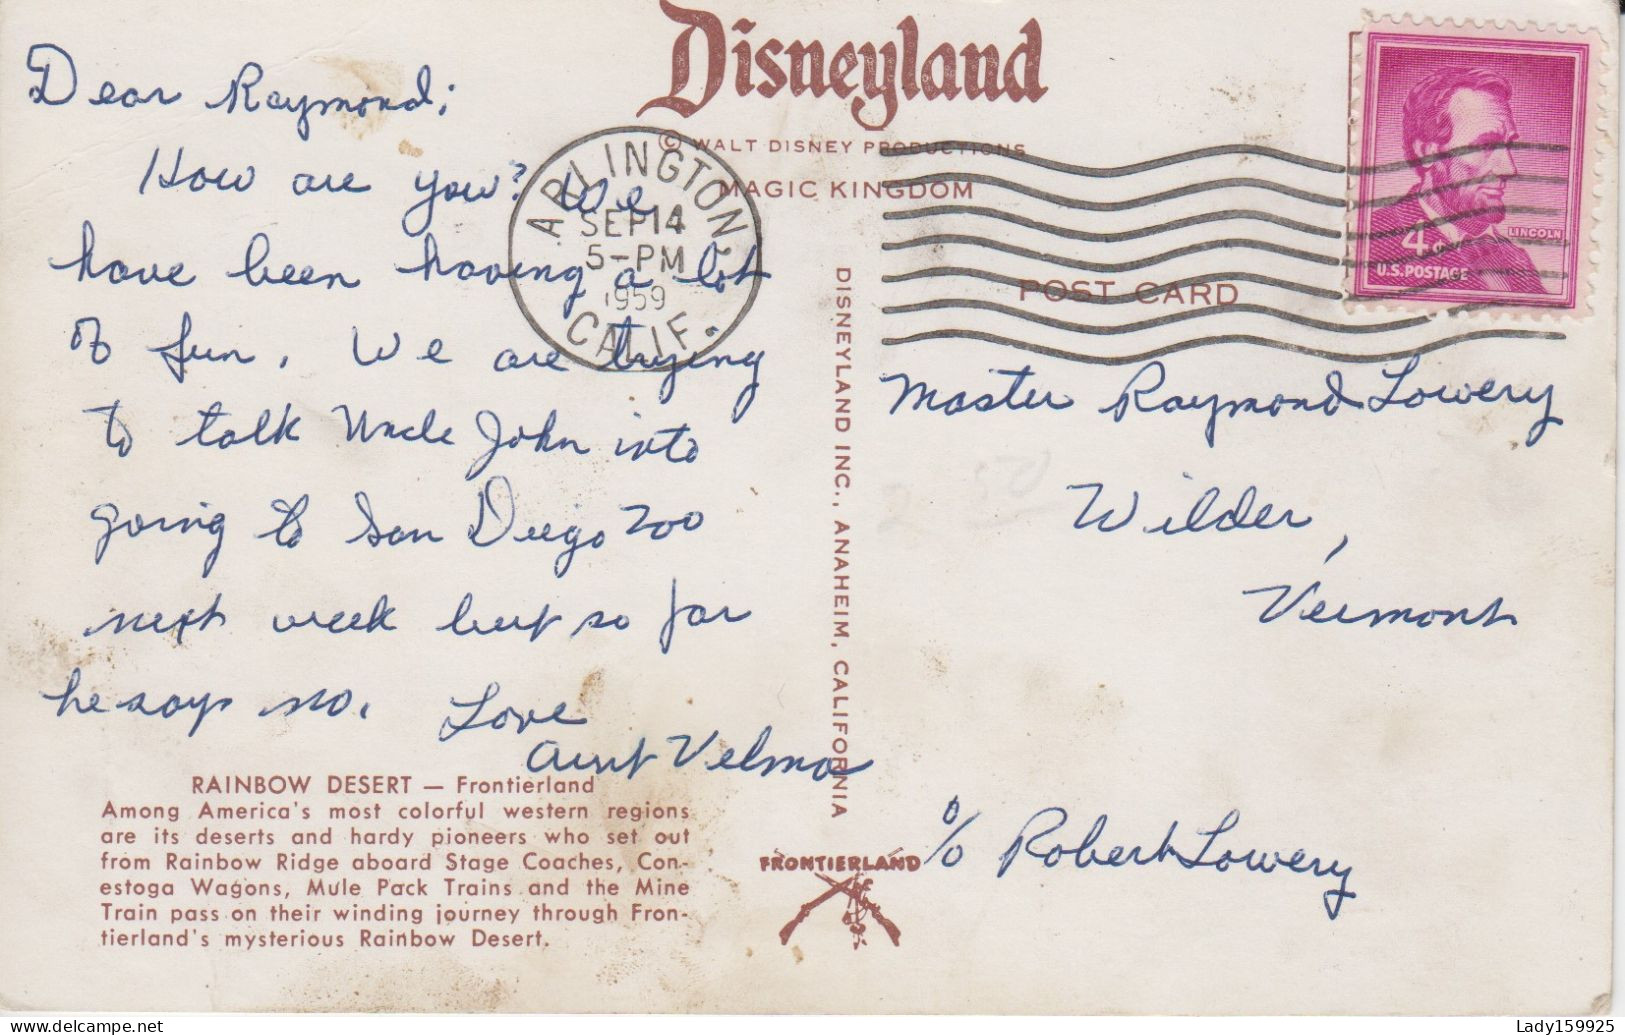 Disneyland
© WALT DISNEY PRODUCTIONS
MAGIC KINGDOM
POST CARD
4c
LINCOLN
U.S. POSTAGE
ARLINGTON,
SEP 14
5-PM
1959
CALIF.
Dear Raymond;
How are you? We
have been having a lot
of fun. We are trying
to talk Uncle John into
going to San Diego Zoo
next week but so far
he says no. Love
Aunt Velma
RAINBOW DESERT — Frontierland
Among America's most colorful western regions
are its deserts and hardy pioneers who set out
from Rainbow Ridge aboard Stage Coaches, Con-
estoga Wagons, Mule Pack Trains and the Mine
Train pass on their winding journey through Fron-
tierland's mysterious Rainbow Desert.
DISNEYLAND INC., ANAHEIM, CALIFORNIA
FRONTIERLAND
Master Raymond Lowery
Wilder,
Vermont
c/o Robert Lowery
delcampe.net
Lady159925